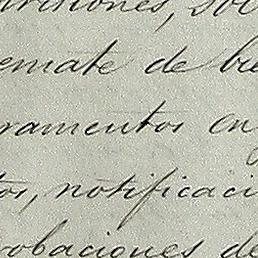 visiones, sol
emate de bie
ramentos en
tos, notificaci
robaciones de